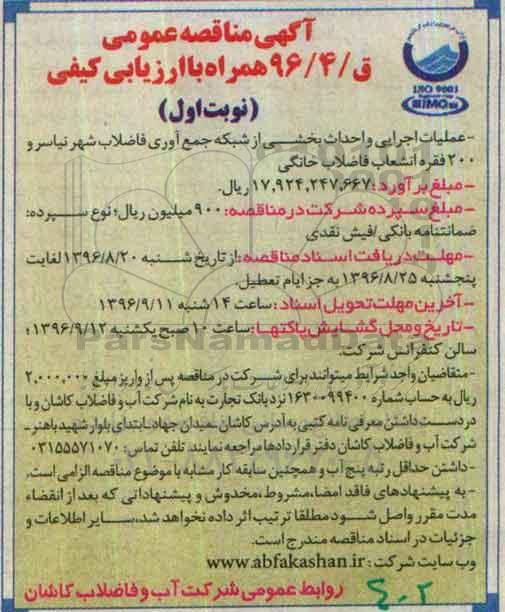 آگهی مناقصه عمومی
ق/۹۶/۴ همراه با ارزیابی کیفی
(نوبت اول)
ISO 9001
-عملیات اجرایی واحداث بخشی از شبکه جمع آوری فاضلاب شهر نیاسر و
۲۰۰ فقره انشعاب فاضلاب خانگی
- مبلغ برآورد: ۱۷,۹۲۴,۲۴۷,۶۶۷ ریال.
- مبلغ سپرده شرکت در مناقصه: ۹۰۰ میلیون ریال؛ نوع سپرده:
ضمانتنامه بانکی/فیش نقدی
-مهلت دریافت اسناد مناقصه: از تاریخ شنبه ۱۳۹۶/۸/۲۰ لغایت
پنجشنبه ۱۳۹۶/۸/۲۵ به جز ایام تعطیل.
-آخرین مهلت تحویل اسناد: ساعت ۱۴ شنبه ۱۳۹۶/۹/۱۱
-تاریخ و محل گشایش پاکتها: ساعت ۱۰ صبح یکشنبه ۱۳۹۶/۹/۱۲؛
سالن کنفرانس شرکت.
-متقاضیان واجد شرایط میتوانند برای شرکت در مناقصه پس از واریز مبلغ ۲,۰۰۰,۰۰۰
ریال به حساب شماره ۱۶۳۰۰۹۹۴۰۰ نزد بانک تجارت به نام شرکت آب و فاضلاب کاشان و با
در دست داشتن معرفی نامه کتبی به آدرس کاشان ـ میدان جهاد ـ ابتدای بلوار شهید باهنر ـ
شرکت آب و فاضلاب کاشان دفتر قراردادها مراجعه نمایند. تلفن تماس: ۰۳۱۵۵۵۷۱۰۷۰
-داشتن حداقل رتبه پنج آب و همچنین سابقه کار مشابه با موضوع مناقصه الزامی است.
- به پیشنهادهای فاقد امضاء، مشروط، مخدوش و پیشنهاداتی که بعد از انقضاء
مدت مقرر واصل شود مطلقا ترتیب اثر داده نخواهد شد، سایر اطلاعات و
جزئیات در اسناد مناقصه مندرج است.
وب سایت شرکت: www.abfakashan.ir
روابط عمومی شرکت آب و فاضلاب کاشان
۴۰۲
ParsNamadData